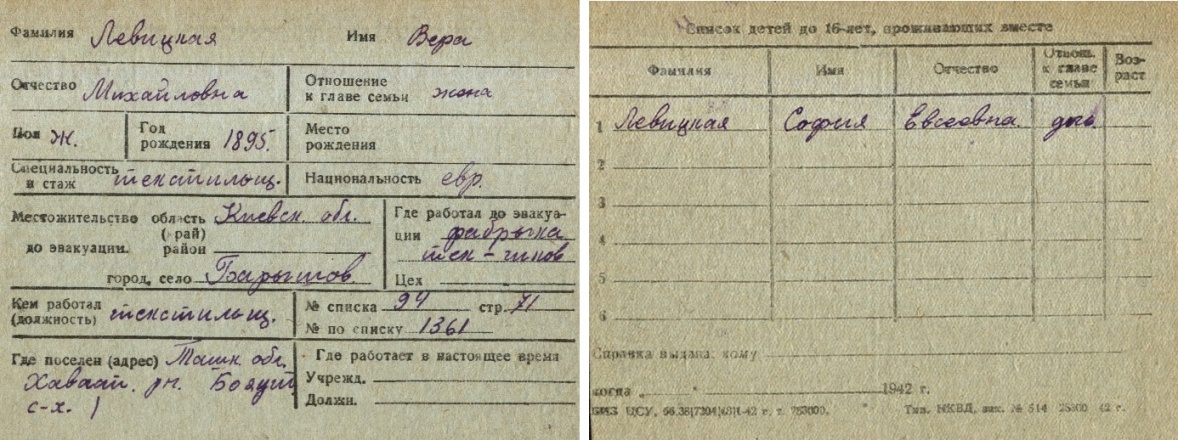 Фамилия Левицкая Имя Вера
Отчество Михайловна Отношение к главе семьи жена
Пол Ж. Год рождения 1895. Место рождения
Специальность и стаж текстильщ. Национальность евр.
Местожительство до эвакуации. область (край) Киевск. обл.
район
город, село Барышов.
Где работал до эвакуации фабрыка
Цех
Кем работал (должность) текстильщ.
№ списка 94 стр. 71
№ по списку 1361
Где поселен (адрес) Ташк обл.
Хаваст. рн.
с-х.
Где работает в настоящее время
Учрежд.
Должн.
Список детей до 16-лет, проживающих вместе
Фамилия Имя Отчество Отнош. к главе семьи Возраст
1 Левицкая София Евсеевна. доч.
2
3
4
5
6
Справка выдана: кому
когда 1942 г.
Тип. НКВД, зак. № 514 42 г.